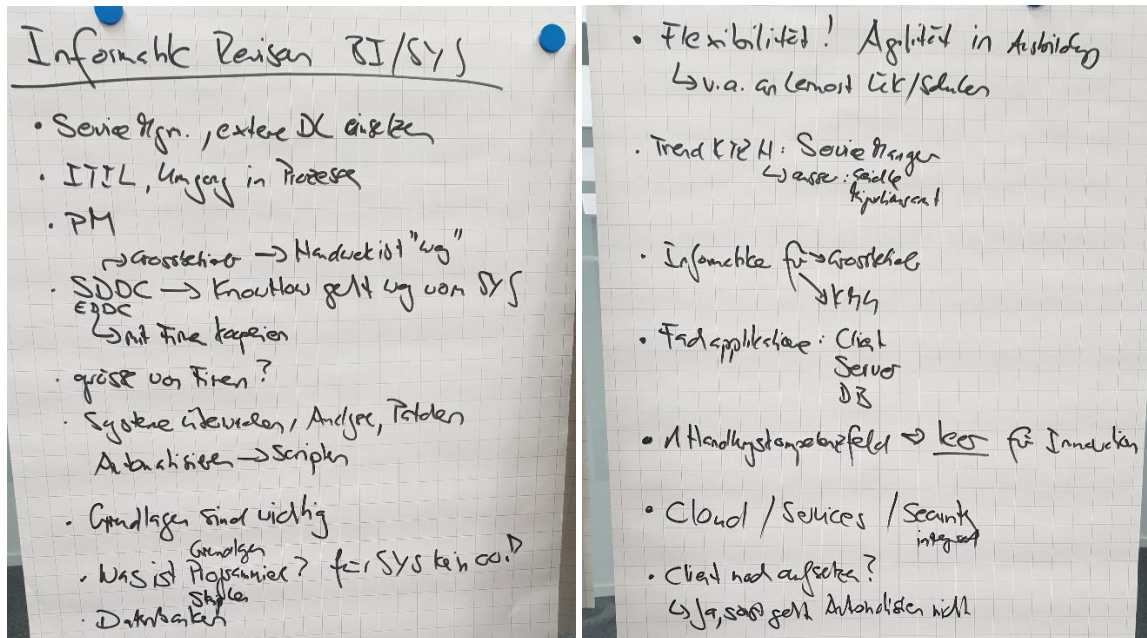 Informatik Revision BI/SYS
• Service Mgn., externe DL einsetzen
• ITIL, Umgang in Prozesse
• PM
↳ Grossbetrieb → Handwerk ist "weg"
• SDDC → KnowHow geht weg vom SYS
EDDC
↳ mit Firma
• grösse von Firmen?
• Systeme überwachen, Analyse, Patchen
Automatisieren → Scripten
• Grundlagen sind wichtig
Grundlagen
• Was ist Programmieren? für SYS kein
Skripten
• Datenbanken
• Flexibilität! Agilität in Ausbildung
↳ v.a. an Lernort ÜK/Schulen
• Trend : Service Manager
↳ ausser:
• Informatiker für → Grossbetrieb
↘ KMU
• Fachapplikationen: Client
Server
DB
• 1 Handlungskompetenzfeld ⇒ leer für Innovation
• Cloud / Services / Security
integriert
• Client noch aufsetzen?
↳ Ja, sonst geht Automatisieren nicht